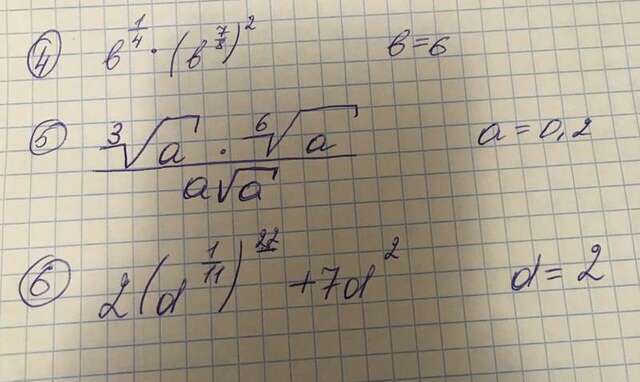 ④ b^{1/4} · (b^{7/8})^2 b=6
⑤ \frac{\sqrt[3]{a} · \sqrt[6]{a}}{a\sqrt{a}} a=0,2
⑥ 2(d^{1/11})^{22} +7d^2 d=2